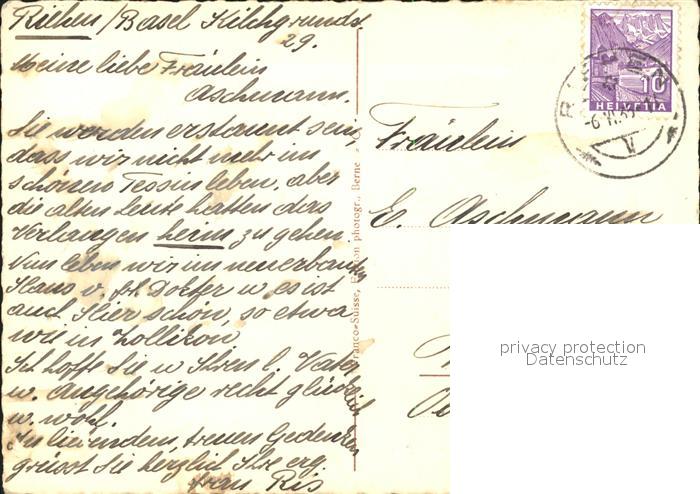 Riehen / Basel Kilchgrundstr.
29.
Meine liebe Fräulein
Aschmann.
Sie werden erstaunt sein,
dass wir nicht mehr im
schönen Tessin leben, aber
die alten Leute hatten das
Verlangen heim zu gehen.
Nun leben wir im neuerbauten
Haus v. Dokter u. es ist
auch Hier schön, so etwa
wie in Zollikon
Ich hoffe Sie u Ihren l. Vater
u. Angehörige recht glücklich
u. wohl.
In liebendem, treuen Gedenken
grüsst Sie herzlich Ihre erg.
Frau Ris
Franco-Suisse, photogr., Berne
HELVETIA
10
RIEHEN
V
Fräulein
E. Aschmann
privacy protection
Datenschutz